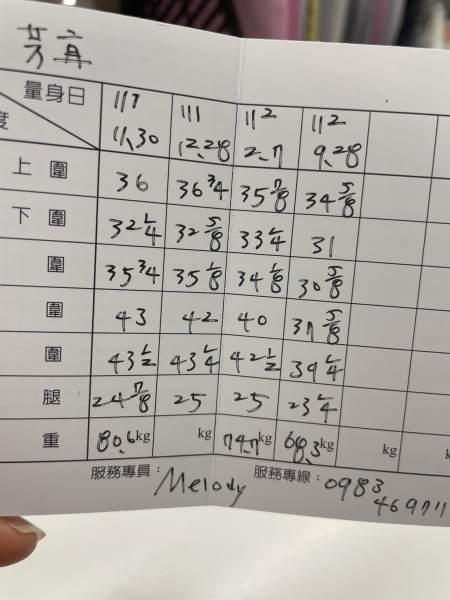 芳森
量身日 117 111 112 112
度 11.30 12.28 2.7 9.28
上圍 36 36 3/4 35 7/8 34 5/8
下圍 32 1/4 32 5/8 33 1/4 31
圍 35 3/4 35 1/8 34 1/8 30 5/8
圍 43 42 40 37 5/8
圍 43 1/2 43 1/4 42 1/2 39 1/4
腿 24 7/8 25 25 23 1/4
重 80.6kg kg 74.7kg 68.3kg kg k
服務專員: Melody 服務專線: 0983
469711